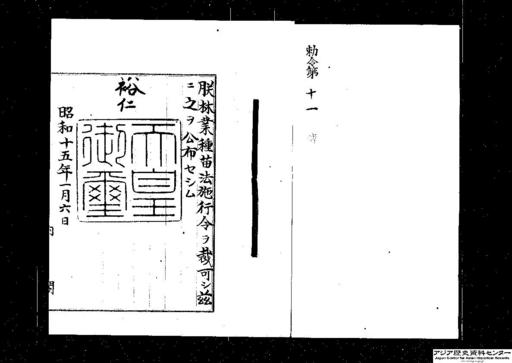 勅令第十一
朕林業種苗法施行令ヲ裁可シ茲
ニ之ヲ公布セシム
裕仁
天皇
御璽
昭和十五年一月六日
内閣
アジア歴史資料センター
Japan Center for Asian Historical Records